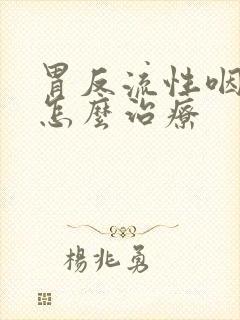 胃反流性咽
怎麼治療
楊兆勇